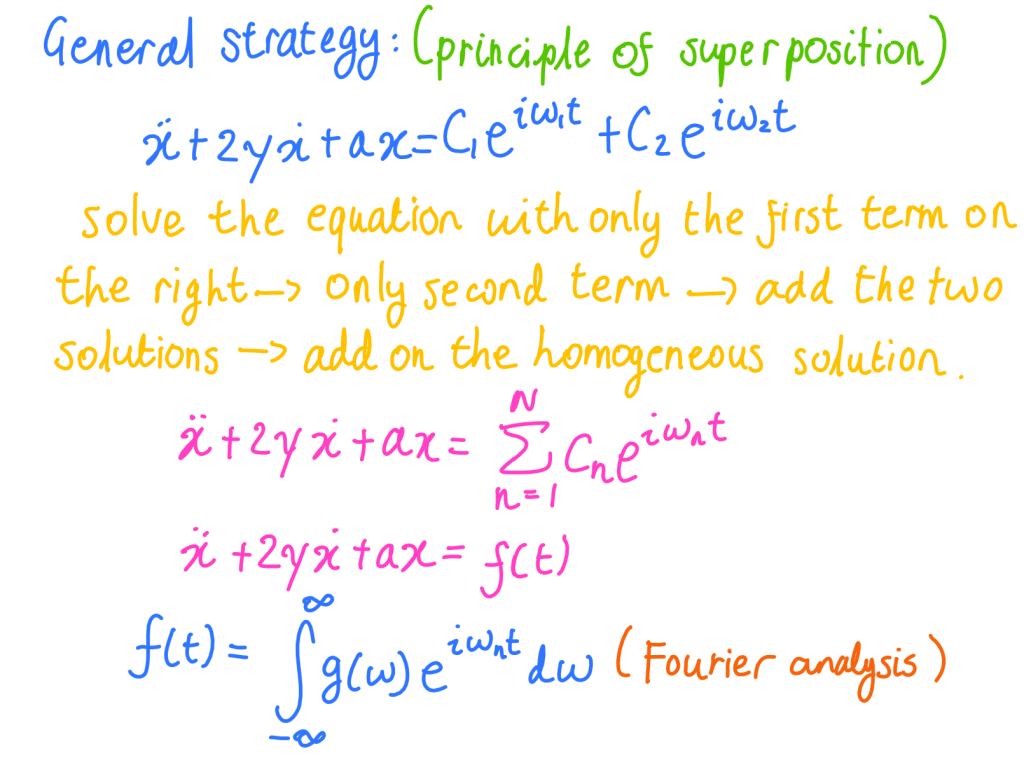 General strategy: (principle of superposition)
ẍ+2γẋ+ax=C₁e^{iω₁t}+C₂e^{iω₂t}
solve the equation with only the first term on
the right → only second term → add the two
solutions → add on the homogeneous solution.
ẍ+2γẋ+ax= \sum_{n=1}^{N} Cₙe^{iωₙt}
ẍ+2γẋ+ax= f(t)
f(t) = \int_{-∞}^{∞} g(ω)e^{iωₙt}dω (Fourier analysis)